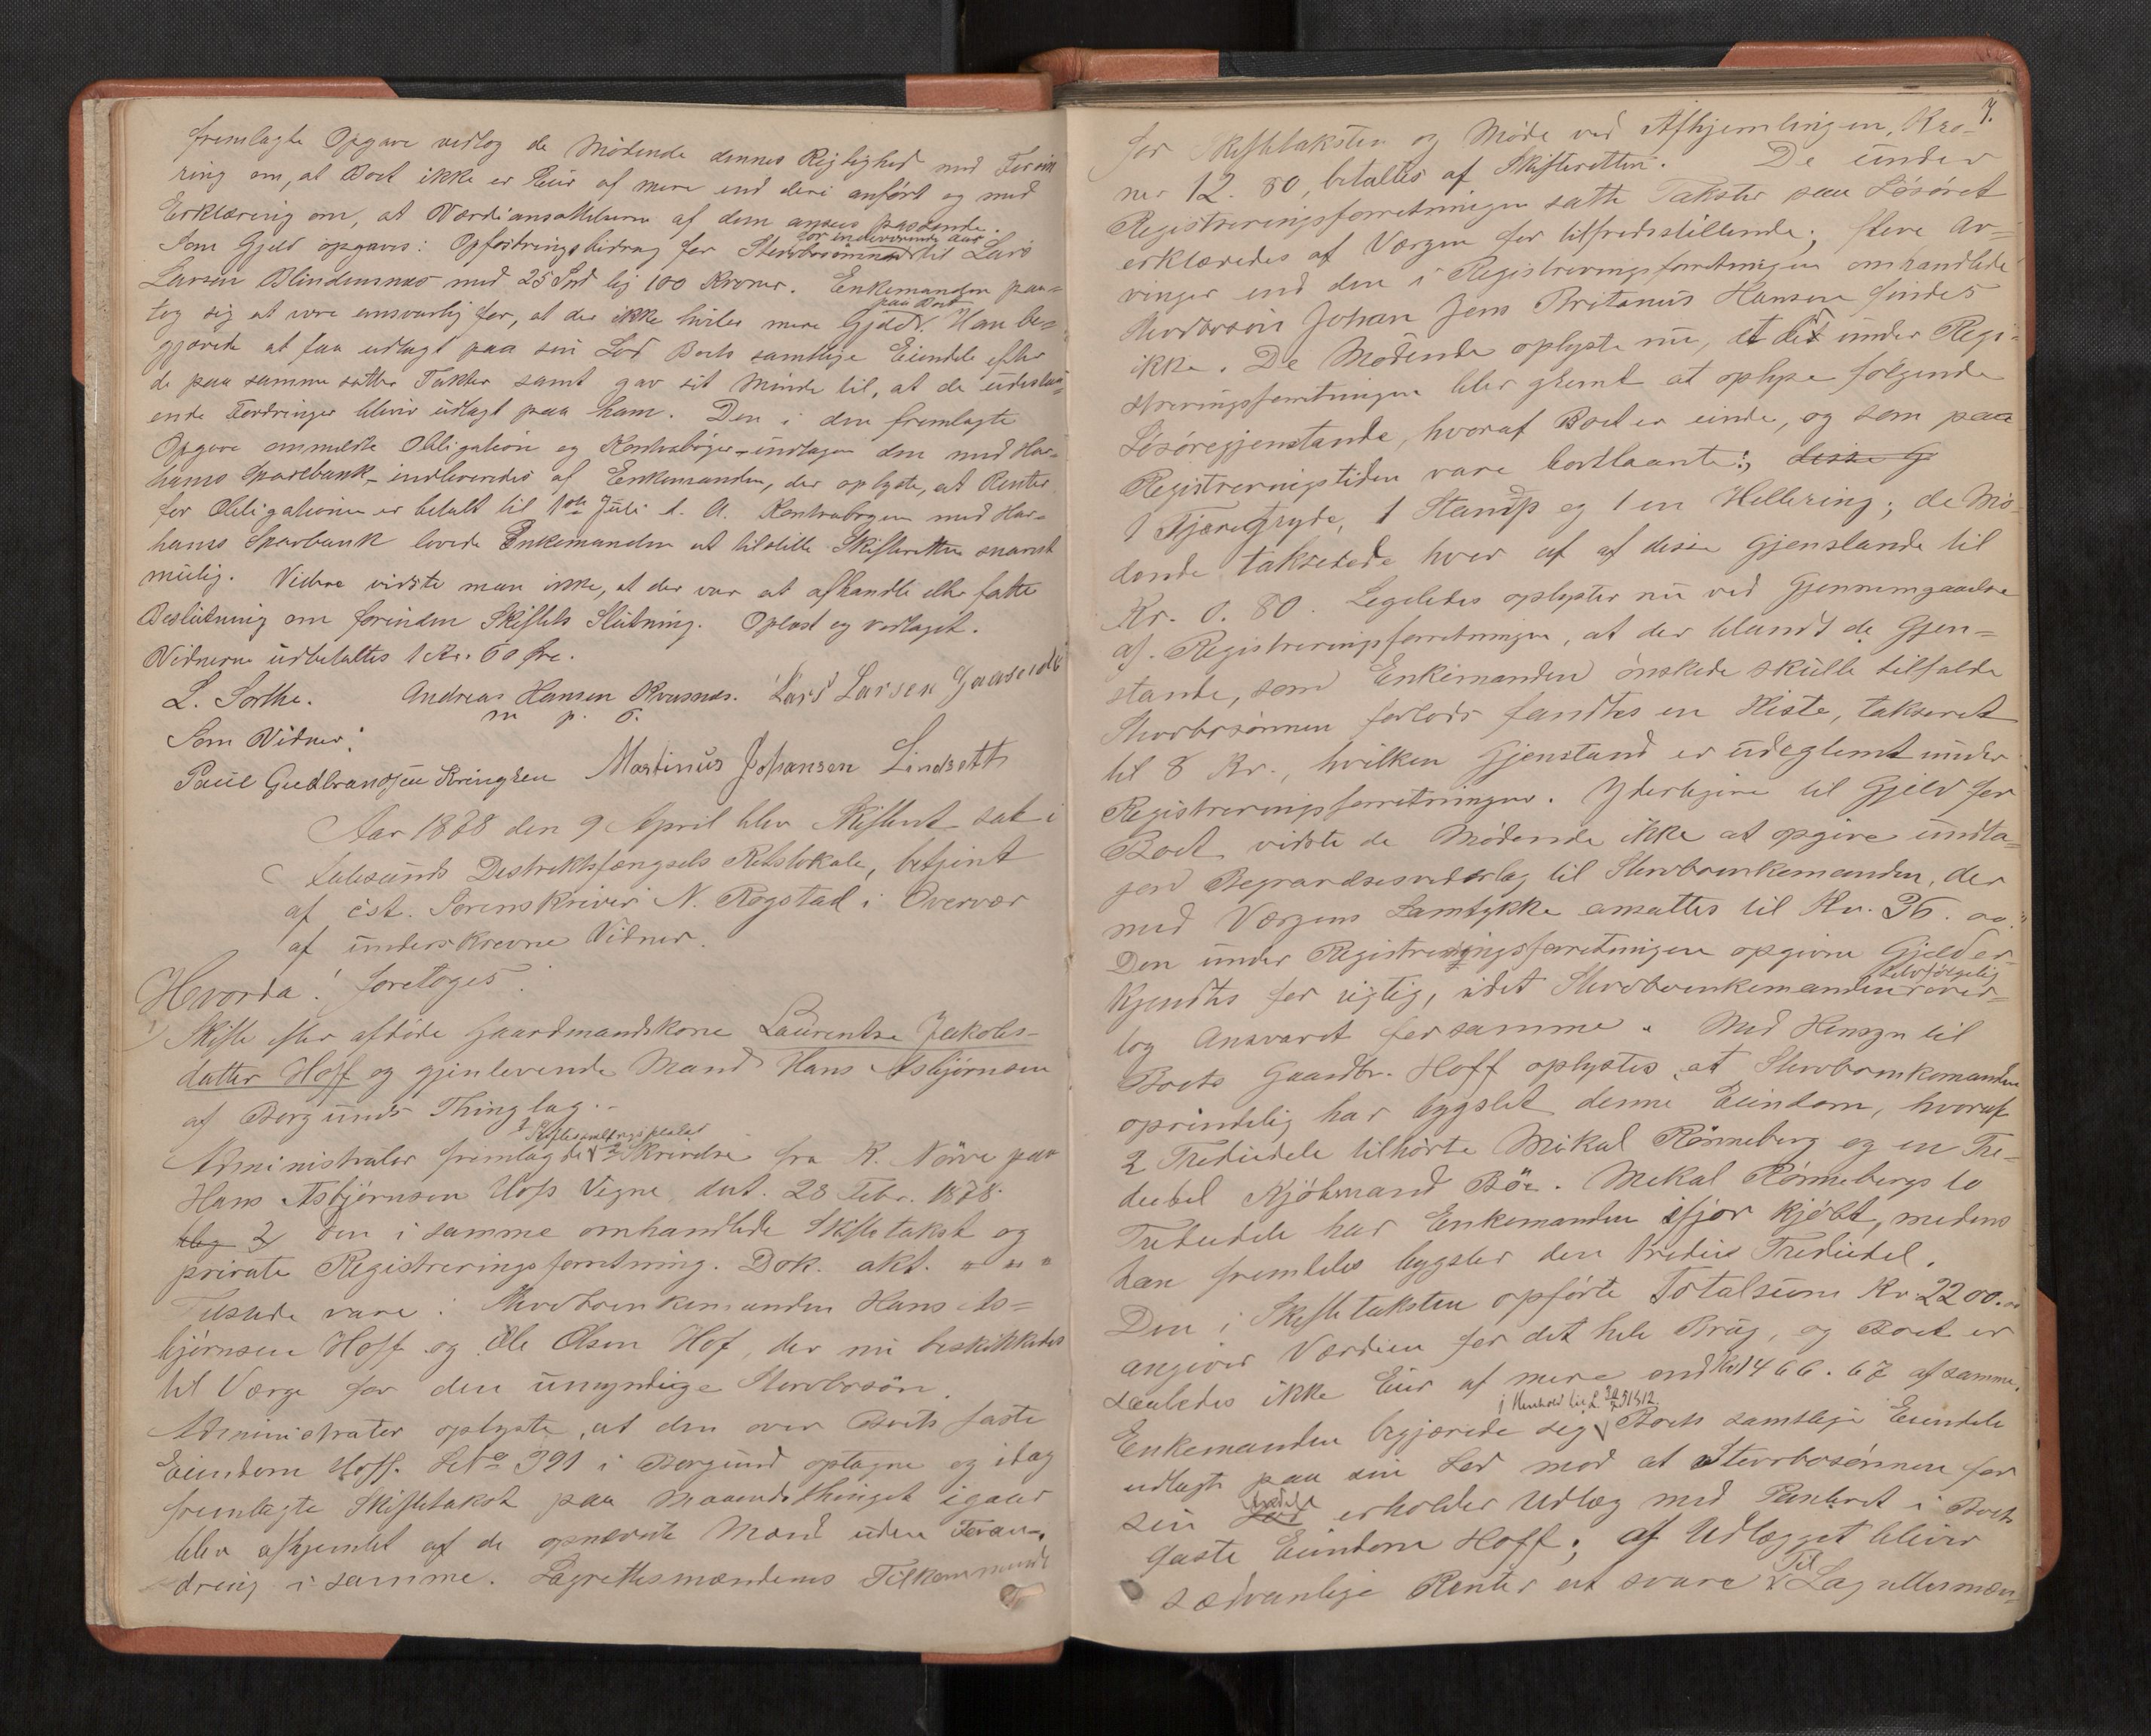 fremlagte Opgave vedtog de Mødende dennes Rigtighed med Forsik
ring om, at Boet ikke er Eier af mere end deri anført og med
Erklæring om, at Værdiansættelserne af dem ansees passende.
for indeværende Aar
Som Gjeld opgaves: Opfostringsbidrag for til Lars
Larsen Blindemnæs med 25 Spd lig 100 Kroner. Enkemanden paa-
paa Boet
tog sig at være ansvarlig for, at der ikke hviler mere Gjeld. Han be-
gjærede at faa udlagt paa sin Lod Boets samtlige Eiendele efter
de paa samme satte Takster samt gav sit Minde til, at de udestaa-
ende Fordringer bliver udlagt paa ham. Den i den fremlagte
Opgave ommeldte Obligation og Kontrabøger - undtagen den med Har-
hams Sparebank - indleveredes af Enkemanden, der oplyste, at Renter
for Obligationen er betalt til 1ste Juli d. A. Kontrabogen med Har-
hams Sparbank lovede Enkemanden at tilstille Skifteretten snarest
mulig. Videre vidste man ikke, at der var at afhandle eller fatte
Beslutning om forinden Skiftets Slutning. Oplæst og vedtaget.
Vidnerne udbetaltes 1 Kr. 60 Øre.
L. Sorthe. Andreas Hansen Kvasnæs. Lars Larsen Gaaseide
m p. o.
Som Vidner:
Paul Gudbrandsen Kringsen Martinus Johansen Lindseth
Aar 1878 den 9 April blev Skifteret sat i
Aalesunds Destriktsfængsels Retslokale, betjent
af cst. Sorenskriver N. Rogstad i Overvær
af underskrevne Vidner.
Hvorda! foretoges:
1) Skifte efter afdøde Gaardmandskone Laurentse Jakobs-
datter Hoff og gjenlevende Mand Hans Asbjørnsen
af Borgunds Thinglag.
Administrator fremlagde Skrivelse fra K. Nørve paa
Hans Asbjørnsen Hofs Vegne dat. 28 Febr. 1878.
2) den i samme omhandlede Skiftetakst og
private Registreringsforretning. Dok. akt. " " "
Tilstede vare: Stervboenkemanden Hans As-
bjørnsen Hoff og Ole Olsen Hof, der nu beskikkedes
til Værge for den umyndige Stervbosøn.
Administrator oplyste, at den over Boets faste
Eiendom Hoff. No 391 i Borgund optagne og idag
fremlagte Skiftetakst paa Maanedsthinget igaar
blev afhjemlet af de opnævnte Mænd uden Foran-
dring i samme. Lagrettesmændenes Tilkommende
7.
for Skiftetaksten og Møde ved Afhjemlingen, Kro-
ner 12. 80, betaltes af Skifteretten. De under
Registreringsforretningen satte Takster paa Løsøret
erklæredes af Værgen for tilfredsstillende; flere Ar-
vinger end den i Registreringsforretningen omhandlede
Stervbosøn Johan Jens Britanus Hansen findes
ikke. De Mødende oplyste nu, at der under Regi-
streringsforretningen blev glemt at oplyse følgende
Løsøregjenstande, hvoraf Boet er eiende, og som paa
Registreringstiden vare bortlaante: disse G
1 Tjæregryde, 1 Stamp og 1 en Hellering; de Mø-
dende takserede hver af af disse Gjenstande til
Kr. 0. 80. Ligeledes oplystes nu ved Gjennemgaaelse
af Registreringsforretningen, at der blandt de Gjen-
stande, som Enkemanden ønskede skulle tilfalde
Stervbosønnen forlods fandtes en Kiste, takseret
til 8 Kr., hvilken Gjenstand er udeglemt under
Registreringsforretningen. Yderligere til Gjeld for
Boet vidste de Mødende ikke at opgive undta-
gen Begravelsesvederlag til Stervboenkemanden, der
med Værgens Samtykke ansattes til Kr. 36. oo
Den under Registreringsforretningen opgivne Gjeld er-
selvfølgelig
kjendtes for rigtig, idet Stervboenkemanden over-
tog Ansvaret for samme. Med Hensyn til
Boets Gaardbr. Hoff oplystes, at Stervboenkemanden
oprindelig har bygslet denne Eiendom, hvoraf
2 Trediedele tilhørte Mikal Rønneberg og en Tre-
diedel Kjøbmand Bøe. Mekal Rønnebergs to
Trediedele har Enkemanden ifjor kjøbt, medens
han fremdeles bygsler den tredie Trediedel.
Den i Skiftetaksten opførte Totalsum Kr 2200. oo
angiver Værdien for det hele Brug, og Boet er
saaledes ikke Eier af mere end Kr 1466. 67 af samme.
i Henhold til L.
Enkemanden begjærede sig Boets samtlige Eiendele
udlagt paa sin Lod mod at Stervbosønnen for
sin Arvedel erholder Udlæg med Panteret i Boets
faste Eiendom Hoff; af Udlægget bliver
Til
sædvanlige Renter at svare Lagrettesmæn-